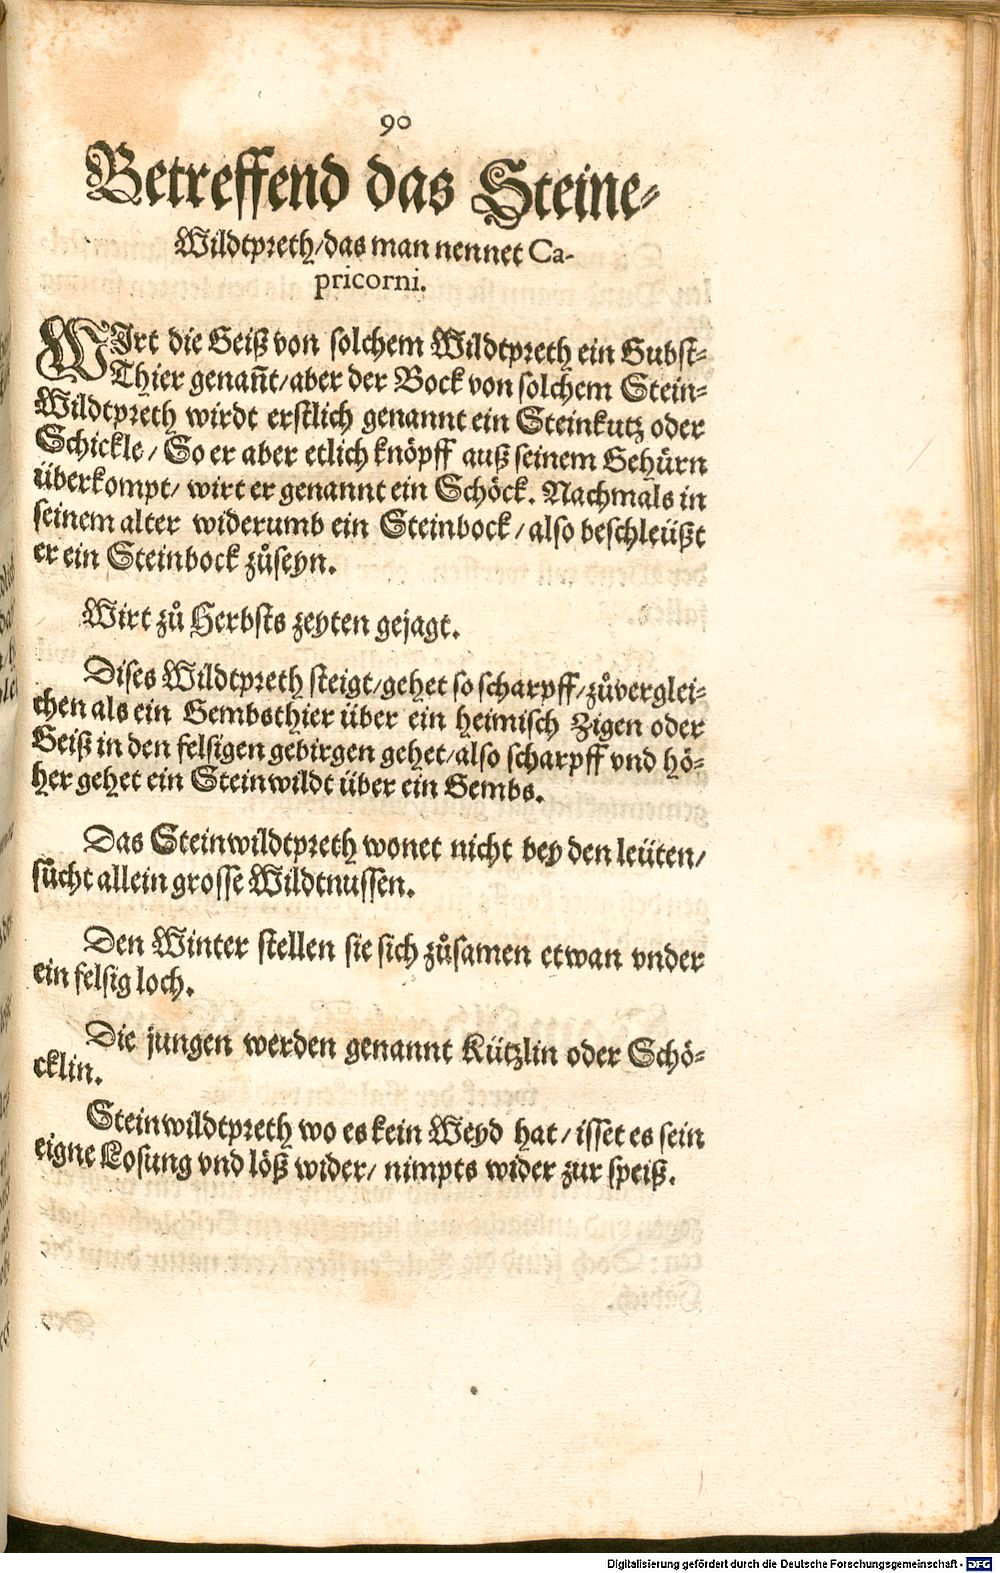 90
Betreffend das Steine⸗
Wildtpreth/das man nennet Ca-
pricorni.
WIrt die Geiß von solchem Wildtpreth ein Gubst⸗
Thier genañt/aber der Bock von solchem Stein⸗
Wildtpreth wirdt erstlich genannt ein Steinkutz oder
Schickle/ So er aber etlich knöpff auß seinem Gehürn
überkompt/ wirt er genannt ein Schöck. Nachmals in
seinem alter widerumb ein Steinbock/ also beschleüßt
er ein Steinbock zůseyn.
Wirt zů Herbsts zeyten gejagt.
Dises Wildtpreth steigt/gehet so scharpff/zůverglei⸗
chen als ein Gembsthier über ein heimisch Zigen oder
Geiß in den felsigen gebirgen gehet/also scharpff vnd hö⸗
her gehet ein Steinwildt über ein Gembs.
Das Steinwildtpreth wonet nicht bey den leüten/
sücht allein grosse Wildtnussen.
Den Winter stellen sie sich zůsamen etwan vnder
ein felsig loch.
Die jungen werden genannt Kützlin oder Schö⸗
cklin.
Steinwildtpreth wo es kein Weyd hat/ isset es sein
eigne Losung vnd löß wider/ nimpts wider zur speiß.
Digitalisierung gefördert durch die Deutsche Forschungsgemeinschaft - DFG